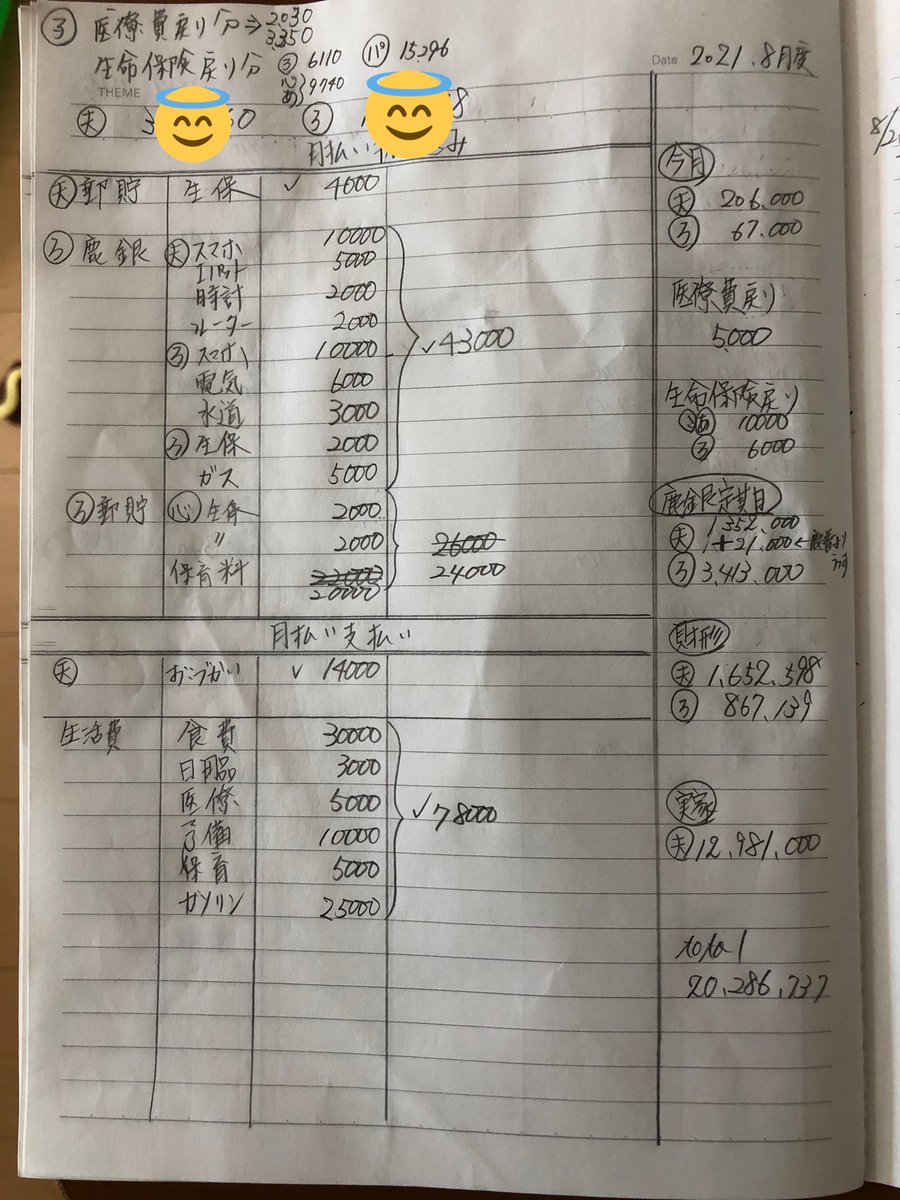 Date 2021.8月度
③ 医療費戻り分⇒2030
3,350
生命保険戻り分 ③ 6110 ㋩ 15,296
9740
THEME
夫 3 60 ③ 8
月払い み
夫 郵貯 生保 ✓ 4000
ろ 鹿銀 夫 スマホ 10000
5000
時計 2000
ルーター 2000
ろ スマホ 10000 ✓43000
電気 6000
水道 3000
ろ 生保 2000
ガス 5000
ろ 郵貯 心 生保 2000
〃 2000 26000
保育料 22000 24000
20000
月払い支払い
夫 おこづかい ✓ 14000
生活費 食費 30000
日用品 3000
医療 5000 ✓78000
予備 10000
保育 5000
ガソリン 25000
今月
夫 206.000
ろ 67.000
医療費戻り
5,000
生命保険戻り
10000
ろ 6000
鹿銀定期
1 352.000
夫 1+21.000←
ろ 3,413.000
財形
夫 1,652,598
ろ 867,139
実家
夫 12,981,000
total
20,286,737
8/